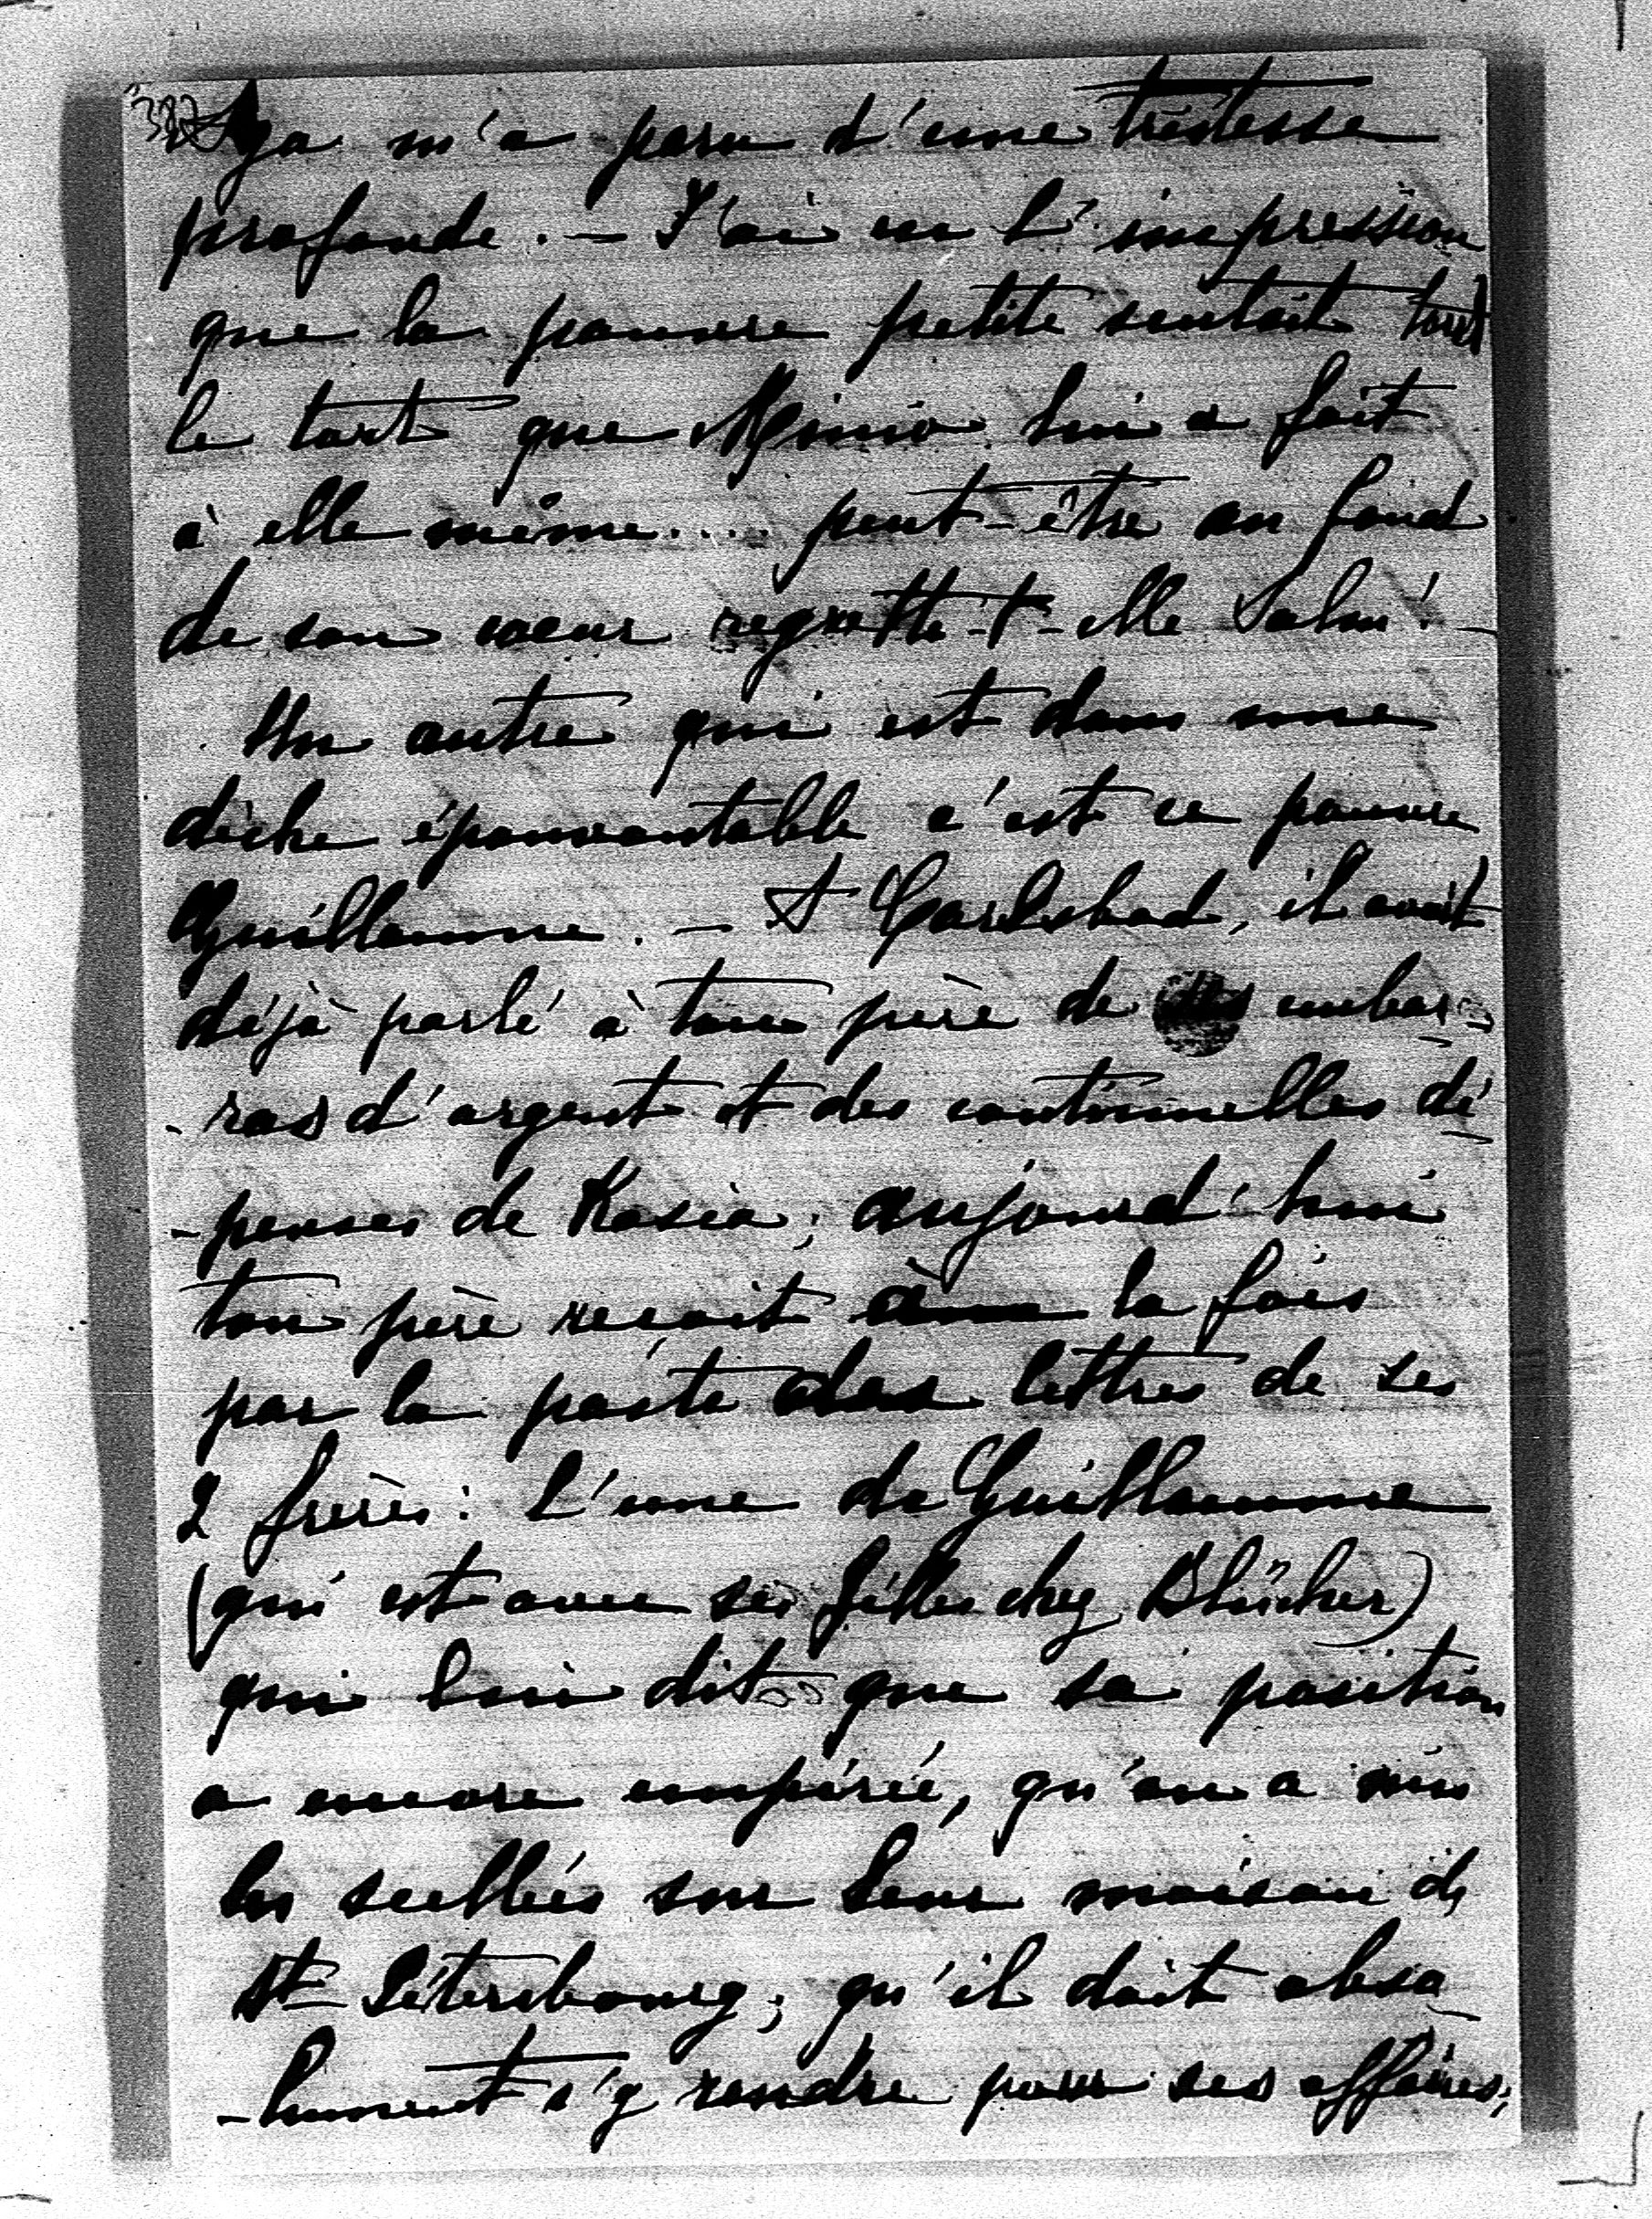 382
ça m'a paru d'une tristesse
profonde. — J'ai eu l'impression
que la pauvre petite sentait tout
le tort que Mimio lui a fait
à elle même.... peut-être au fond
de son coeur regrette-t-elle
Un autre qui est dans une
dèche épouvantable c'est ce pauvre
Guillaume. — A Carlsbad, il avait
déjà parlé à ton père de embar-
-ras d'argent et des continuelles dé
-penses de Kasia; aujourd'hui
ton père recoit à la fois
par la poste des lettres de ses
2 frères: l'une de Guillaume
(qui est avec ses filles chez Blücher)
qui lui dit que sa position
a encore empirée, qu'on a mis
les scellés sur leur maison de
St-Pétersbourg; qu'il doit abso
-lument s'y rendre pour ses affaires;